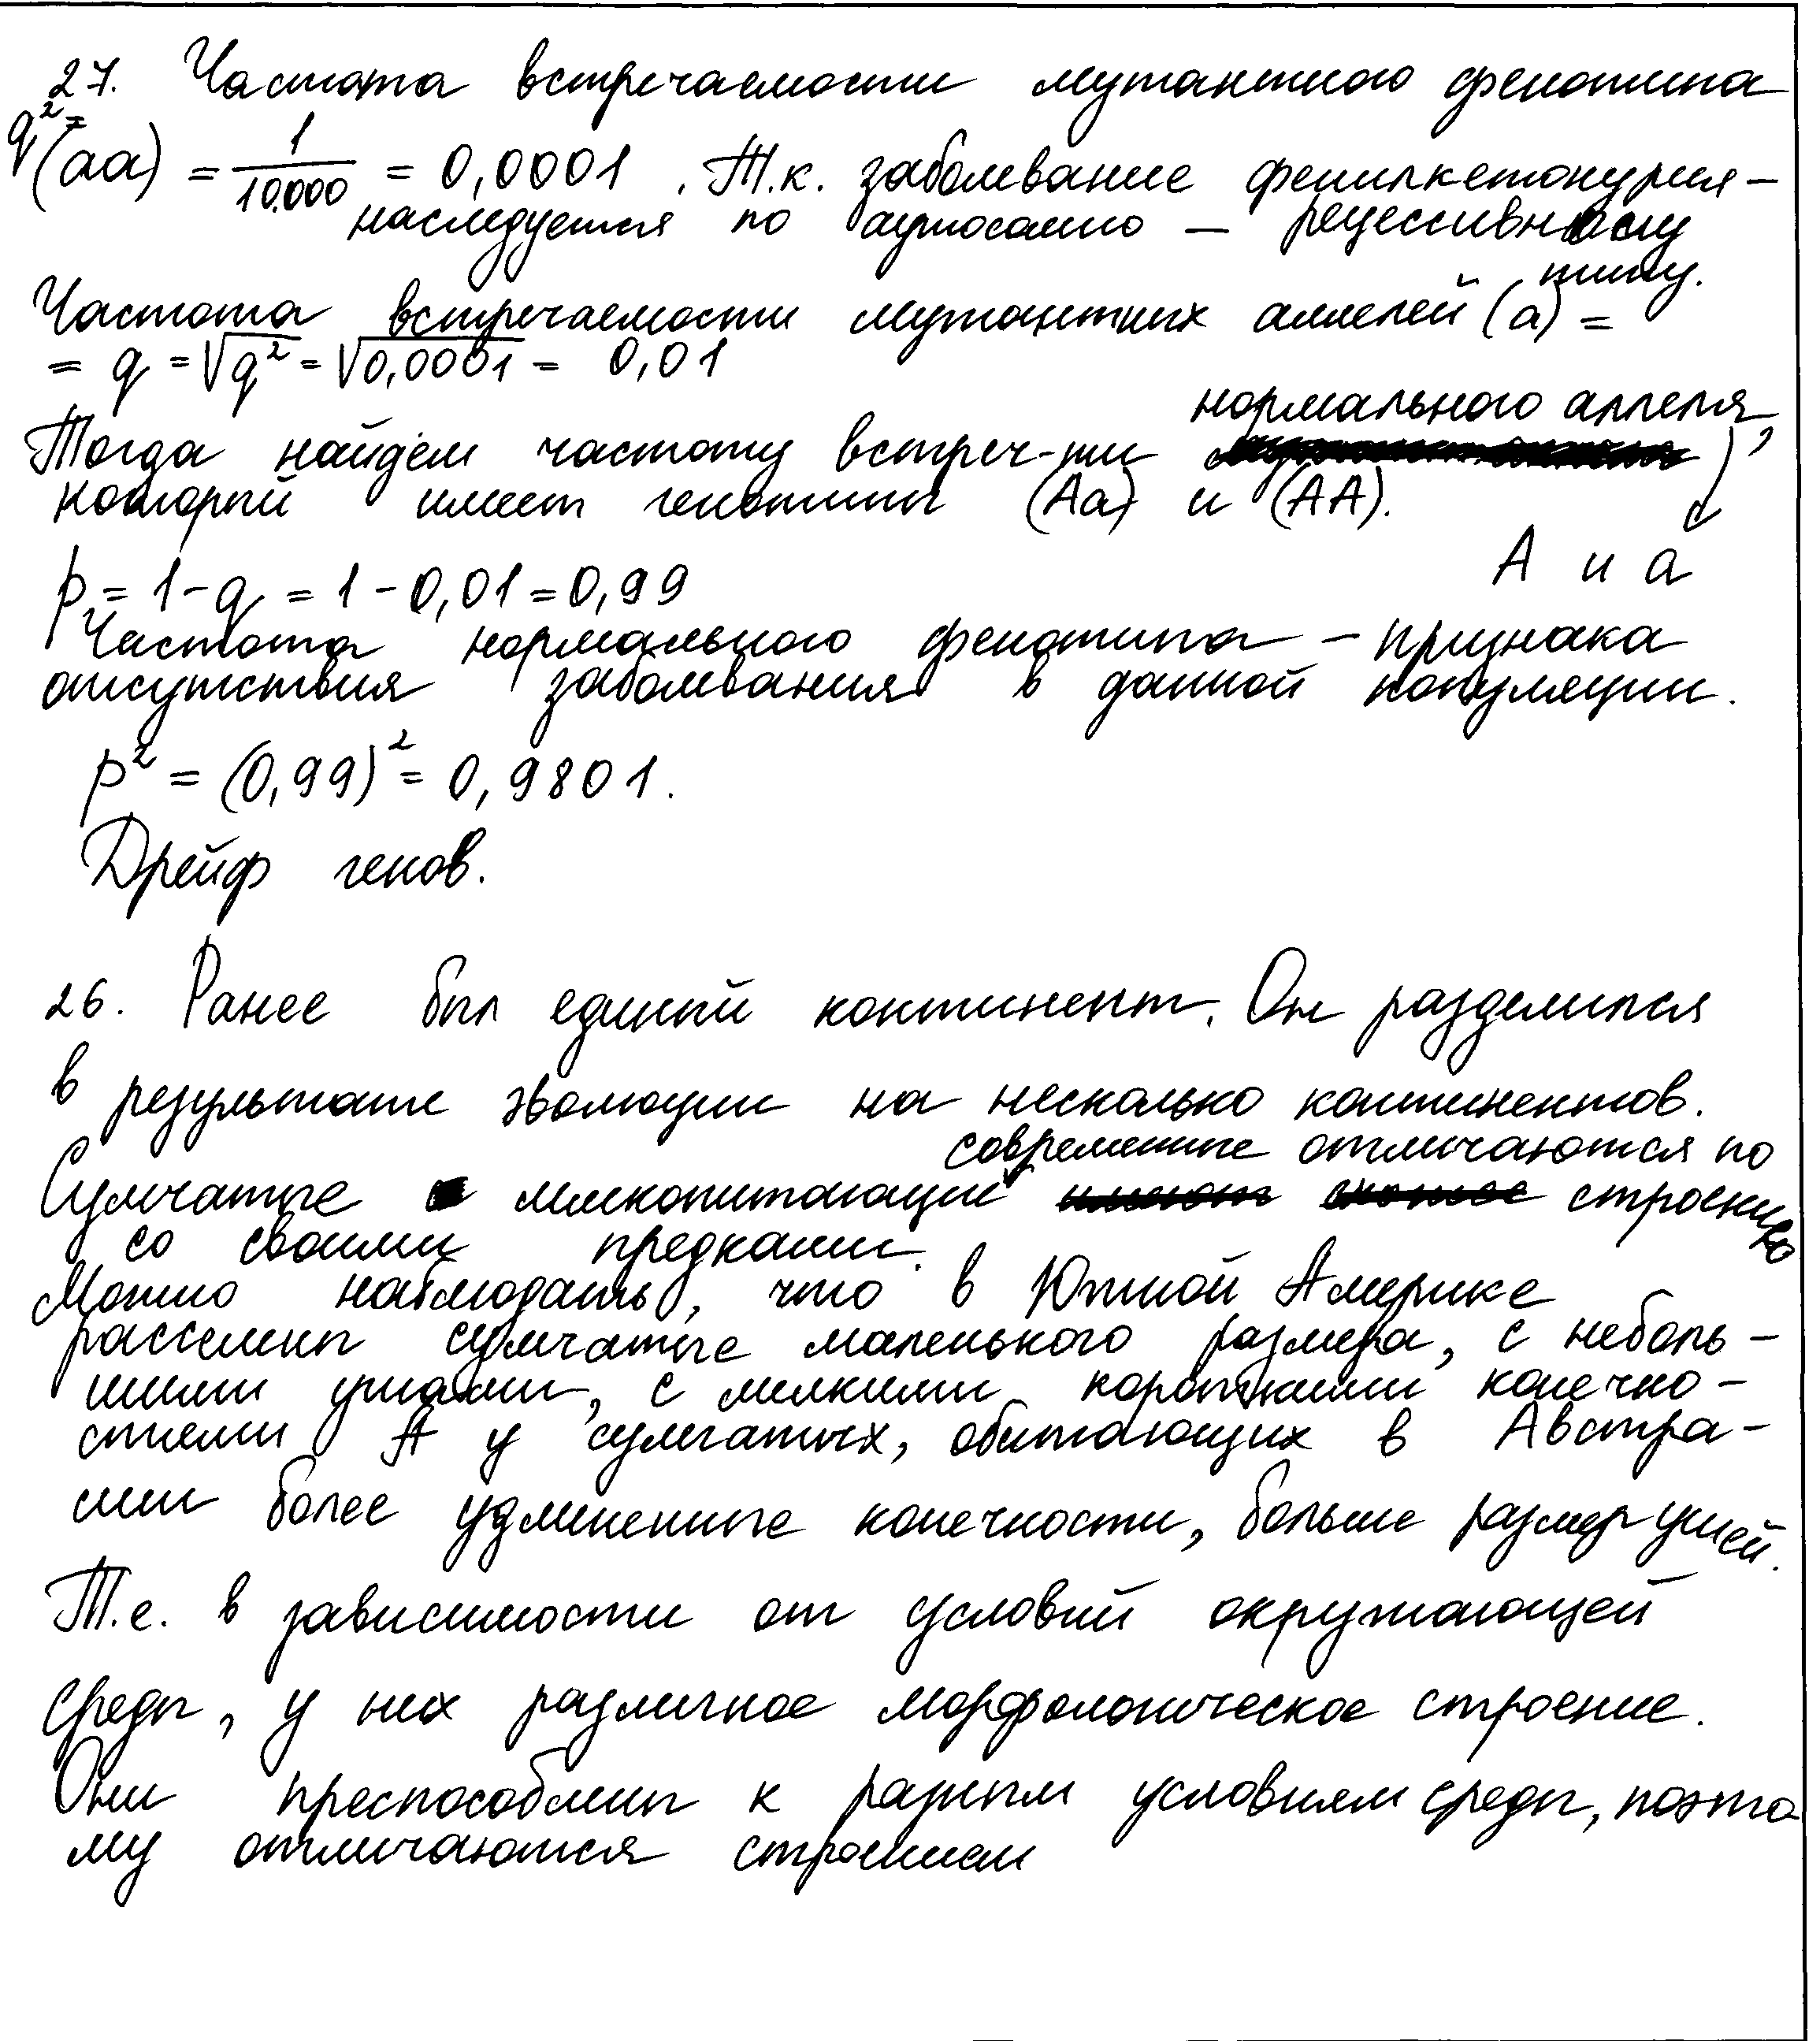 27. Частота встречаемости мутантного фенотипа
q²=(aa) = 1/10.000 = 0,0001 . Т.к. заболевание фенилкетонурия –
наследуется по аутосомно – рецессивному
типу.
Частота встречаемости мутантных аллелей (a) =
= q = √q² = √0,0001 = 0,01
нормального аллеля,
Тогда найдем частоту встреч-ти
который имеет генотипы (Aa) и (AA).
A и a
p = 1 - q = 1 - 0,01 = 0,99
Частота нормального фенотипа – признака
отсутствия заболевания в данной популяции.
p² = (0,99)² = 0,9801.
Дрейф генов.
26. Ранее был единый континент. Он разделился
в результате эволюции на несколько континентов.
современные отличаются по
Сумчатые млекопитающие строению
со своими предками.
Можно наблюдать, что в Южной Америке
расселены сумчатые маленького размера, с неболь-
шими ушами, с мелкими короткими конечно-
стями А у сумчатых, обитающих в Австра-
лии более удлиненные конечности, больше размер ушей.
Т.е. в зависимости от условий окружающей
среды, у них различное морфологическое строение.
Они преспособлены к разным условиям среды, поэто
му отличаются строением